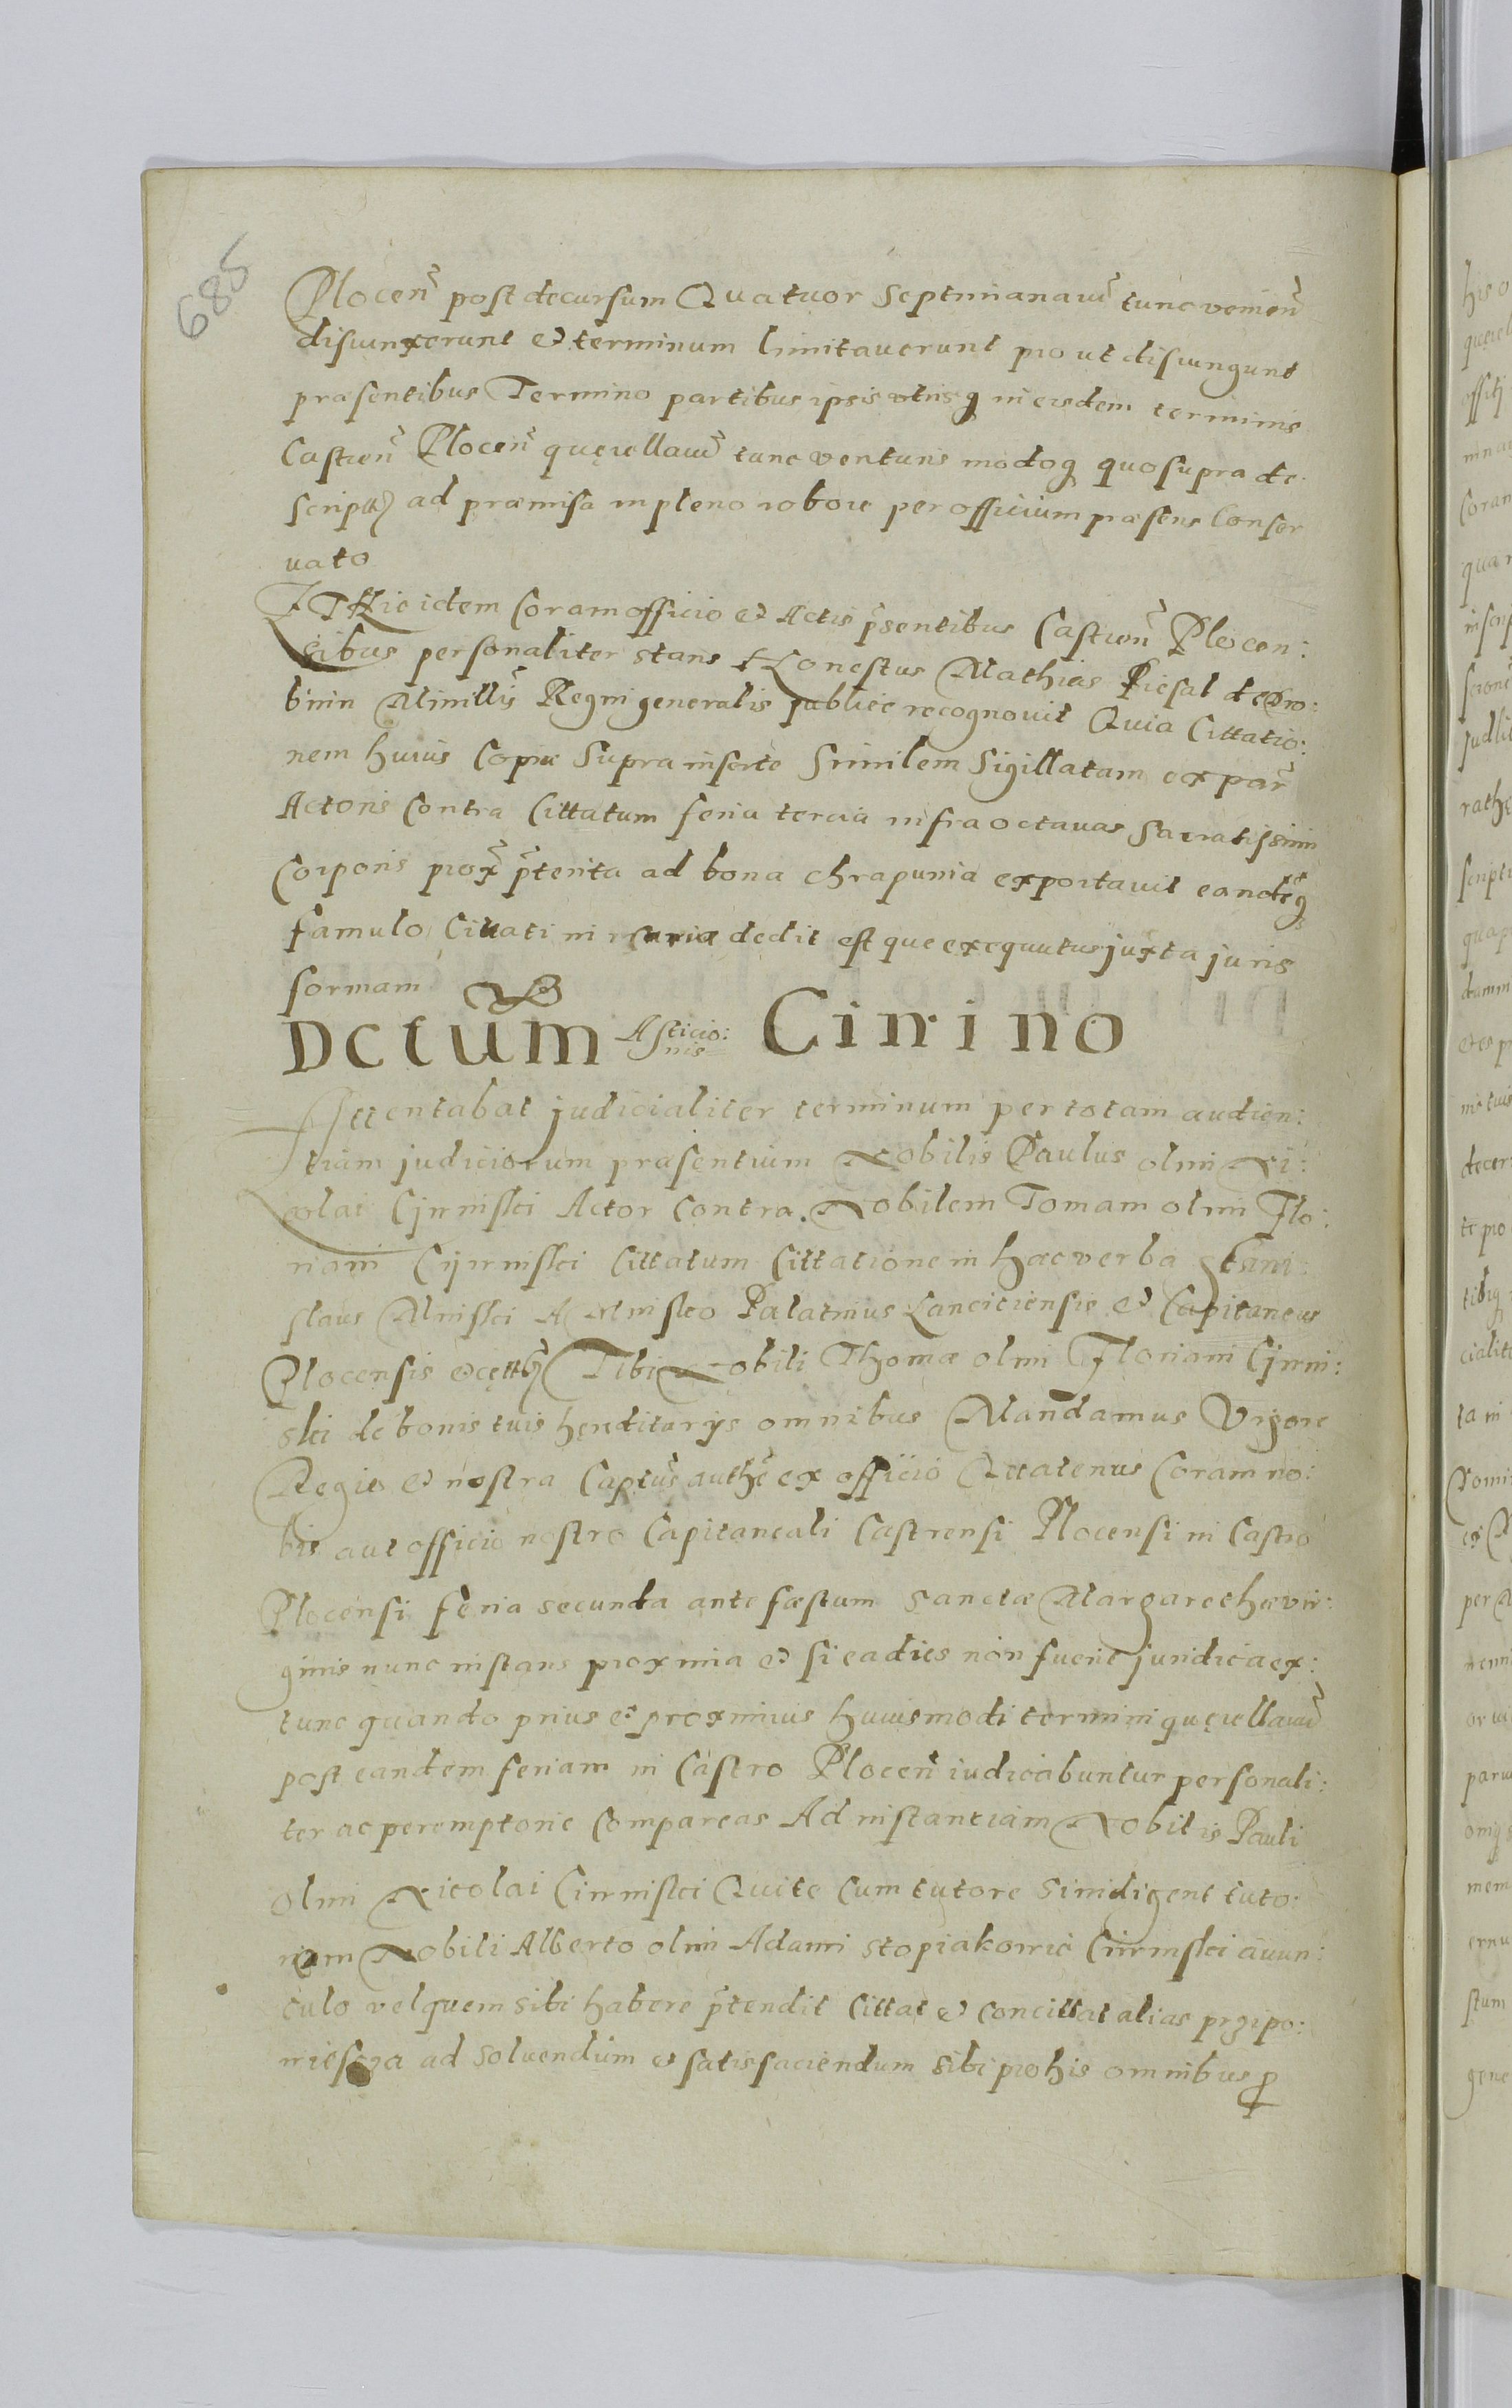 685
Plocen̄ post decursum Quatuor Septimanarū tunc venien̄
disiunxerunt et terminum limitaverunt pro ut disiungunt
præsentibus Termino partibus ipsis utrisq in eisdem terminis
Castren̄ Plocen̄ quęrellarū tunc venturis modoq quo supra de:
scripto ad præmissa in pleno robore per officium præsens Conser
uato
ITHic idem Coram officio et Actis p̄sentibus Castren̄ Plocen:
sibus personaliter stans Honestus Mathias Piesal de Dro:
binin Minillis̄ Regni generalis publice recognovit Quia Cittatio:
nem huius Copiæ Supra insertæ Similem Sigillatam ex par̄
Actoris Contra Cittatum feria tercia infra octavas Sacratissimi
Corporis prox̄ p̄terita ad bona Chrapunia exportavit eandēq
famulo Cittati in curia dedit est que exequutus juxta juris
formam
Dctum Asticio:nis Cirino
Attentabat judicialiter terminum per totam audien:
tiam judiciorum præsentium Nobilis Paulus olim Ni:
colai Cijrinski Actor Contra Nobilem Tomam olim Flo:
riani Cijrinski Cittatum Cittatione in hæc verba Stani:
slaus Minski A Minsko Palatinus Lanciciensis et Capitaneus
Plocensis et cętt Tibi Nobili Thomæ olim Floriani Cijrni:
ski de bonis tuis hęreditarys omnibus Mandamus Vigore
Regia et nostra Captūs authē ex officio Quatenus Coram no:
bis aut officio nostro Capitaneali Castrensi Plocensi in Castro
Plocensi feria secunda ante fæstum Sanctæ Margarethæ vir:
ginis nunc instans proxima et si ea dies non fuerit juridica ex:
tunc quando prius et proximius huiusmodi termini quęrellarū
post eandem feriam in Castro Plocen̄ iudicabuntur personali:
ter ac peremptorie Compareas Ad instantiam Nobilis Pauli
olim Nicolai Cirinski Qui te Cum tutore Si indigent tuto:
riam Nobili Alberto olim Adami Stopiakowic Cirinski avun:
culo vel quem sibi habere p̄tendit Cittat et concittat alias przipo:
wiescza ad solvendum et satisfaciendum sibi pro his omnibus p